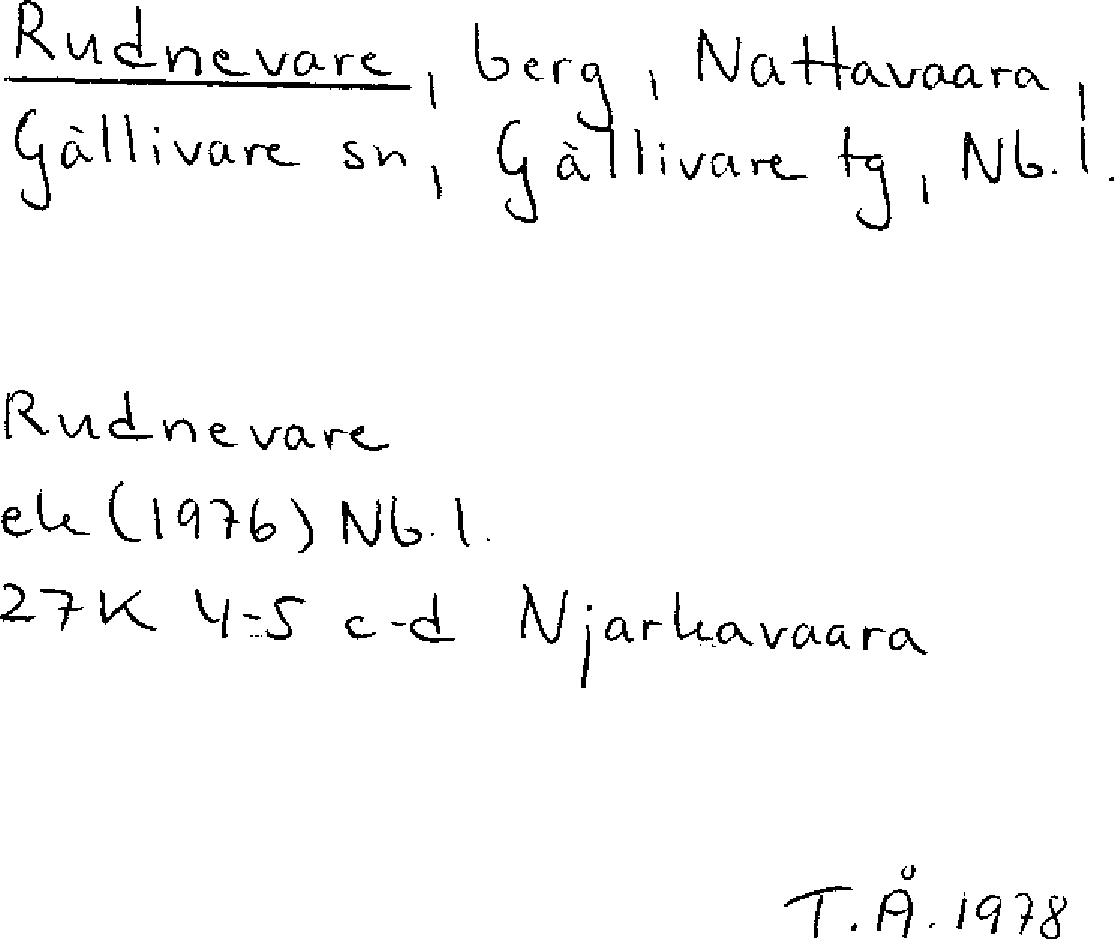 Rudnevare, berg, Nattavaara,
Gällivare sn, Gällivare tg, Nb. l.
Rudnevare
ek (1976) Nb. l.
27K 4-5 c-d Njarkavaara
T.Å. 1978